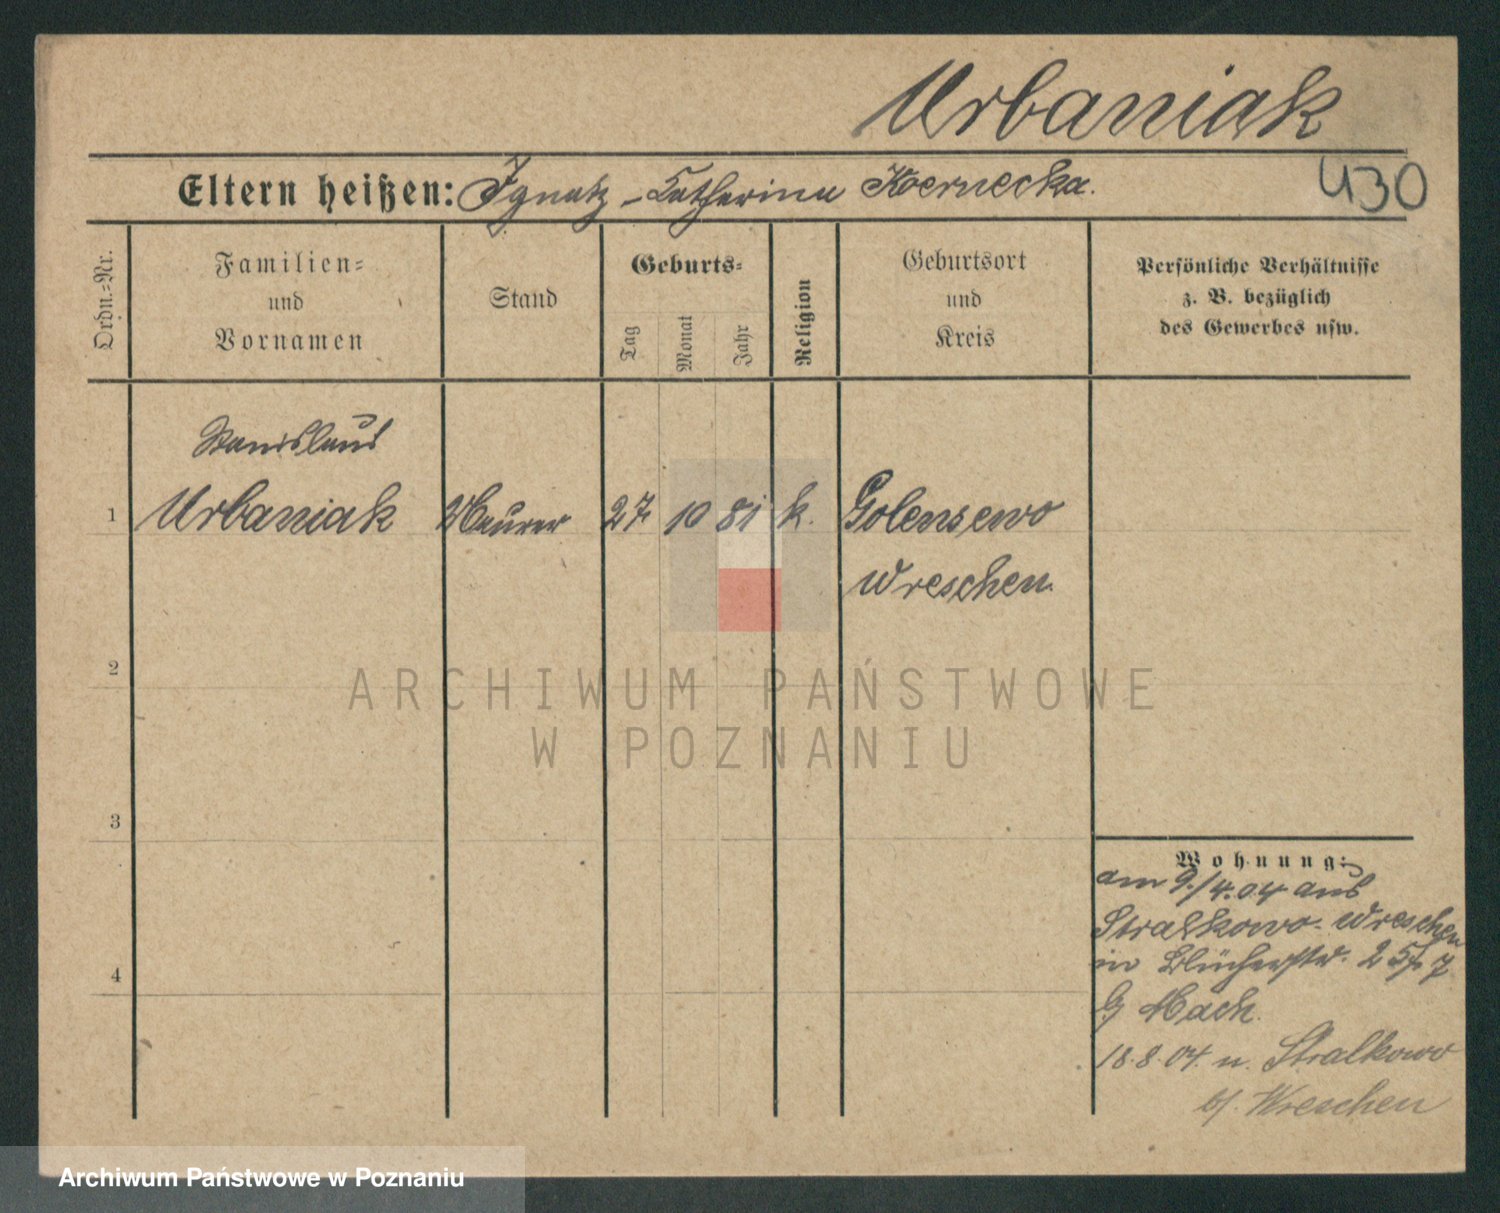 Urbaniak
430
Eltern heißen: Ignatz - Catharina Koernecka.
Ordn.-Nr.
Familien-
und
Vornamen
Stand
Geburts-
Tag
Monat
Jahr
Religion
Geburtsort
und
Kreis
Persönliche Verhältnisse
z. B. bezüglich
des Gewerbes usw.
Stanislaus
1 Urbaniak Maurer 27. 10 81 k. Golensewo
Wreschen.
2
3
4
Wohnung:
am 9./4.04 aus
Stralkowo. Wreschen
in Blücherstr. 25
b/ Mack.
18.8.04. n. Stralkowo
b/. Wreschen
ARCHIWUM PAŃSTWOWE
W POZNANIU
Archiwum Państwowe w Poznaniu